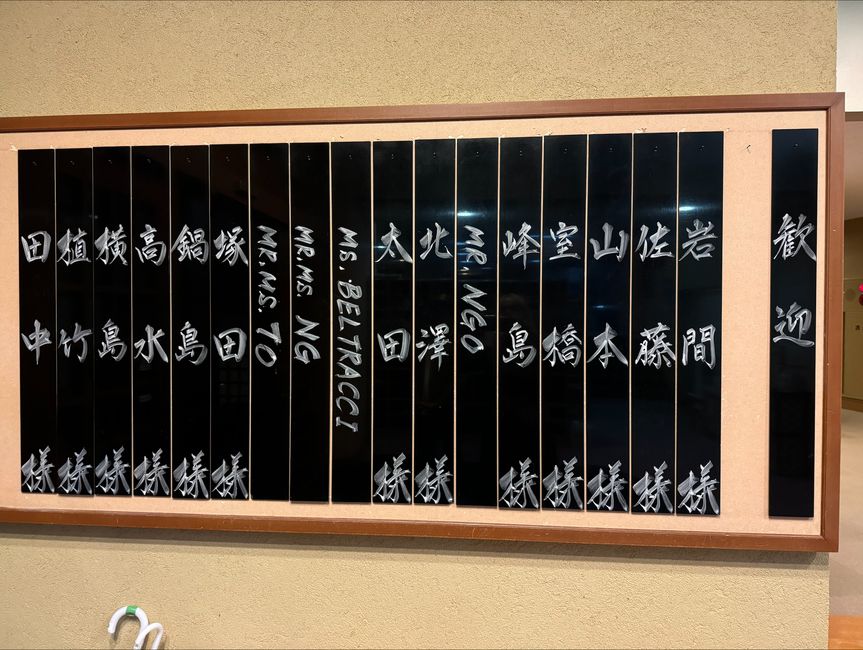 歓迎
岩間様
佐藤様
山本様
室橋様
峰島様
MR. NGO
北澤様
太田様
MS. BELTRACCI
MR.MS. NG
MR.MS. TO
塚田様
鍋島様
高水様
横島様
植竹様
田中様